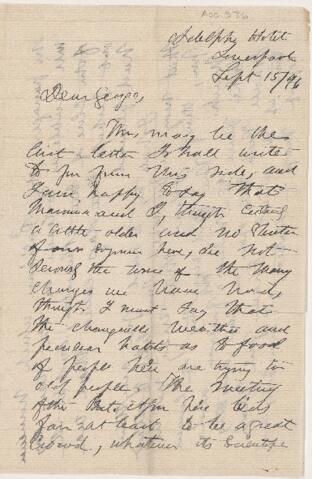 Adelphi Hotel
Liverpool
Sept 15/96
Dear George,
This may be the
last letter I shall write
to you from this side, and
I am happy to say that
Mamma and I, though certainly
a little older and no
of our here, are not
the worse of the many
changes we have had,
though I must say that
the changeable weather and
peculiar habits as to food
of people here are trying to
old people. The meeting
of the here bids
fair at least to be a great
crowd, whatever its scientific